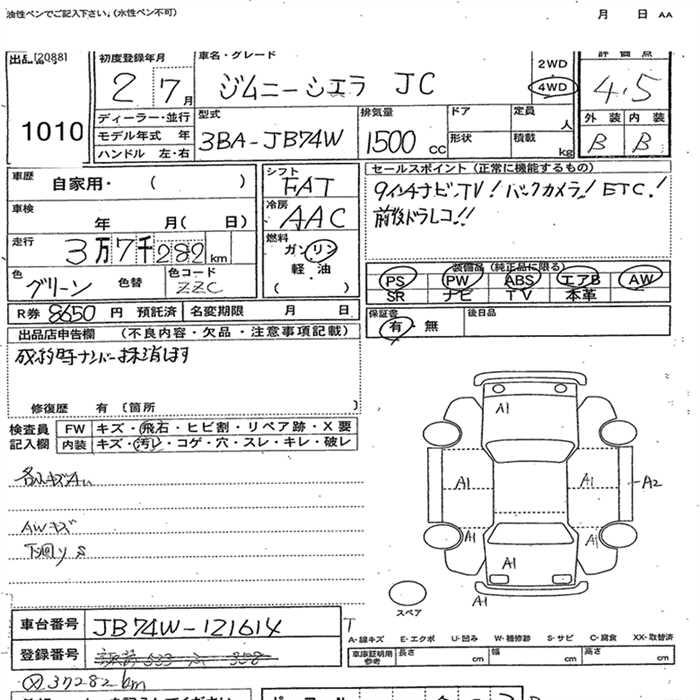 油性ペンでご記入下さい。(水性ペン不可)
月 日 AA
出品 [2088]
1010
初度登録年月
2 7月
車名・グレード
ジムニーシエラ JC
2WD
4WD
評価点
4.5
ディーラー・並行
モデル年式 年
ハンドル 左・右
型式
3BA-JB74W
排気量
1500 cc
ドア
形状
定員 人
積載 kg
外装 内装
B B
車歴
自家用・( )
車検
年 月( 日)
走行
3万7千282km
色
グリーン 色替
色コード
ZZC
シフト
FAT
冷房
AAC
燃料
ガソリン
軽・油
( )
セールスポイント(正常に機能するもの)
9インチナビ、TV! バックカメラ! ETC!
前後ドラレコ!!
装備品(純正品に限る)
PS PW ABS エアB AW
SR ナビ TV 本革
R券 8650 円 預託済 名変期限 月 日
保証書
有・無
後日品
出品店申告欄 (不良内容・欠品・注意事項記載)
ナンバー抹消します
修復歴 有〔箇所 〕
検査員
記入欄
FW キズ・飛石・ヒビ割・リペア跡・X要
内装 キズ・汚レ・コゲ・穴・スレ・キレ・破レ
AWキズ
下廻りS
A1
A1
A1
A2
A1
A1
A1
A1
スペア
車台番号 JB74W-121614
登録番号
37282km
T
A-線キズ E-エクボ U-凹み W-補修跡 S-サビ C-腐食 XX-取替済
車庫証明用
参考
長さ cm 幅 cm 高さ cm